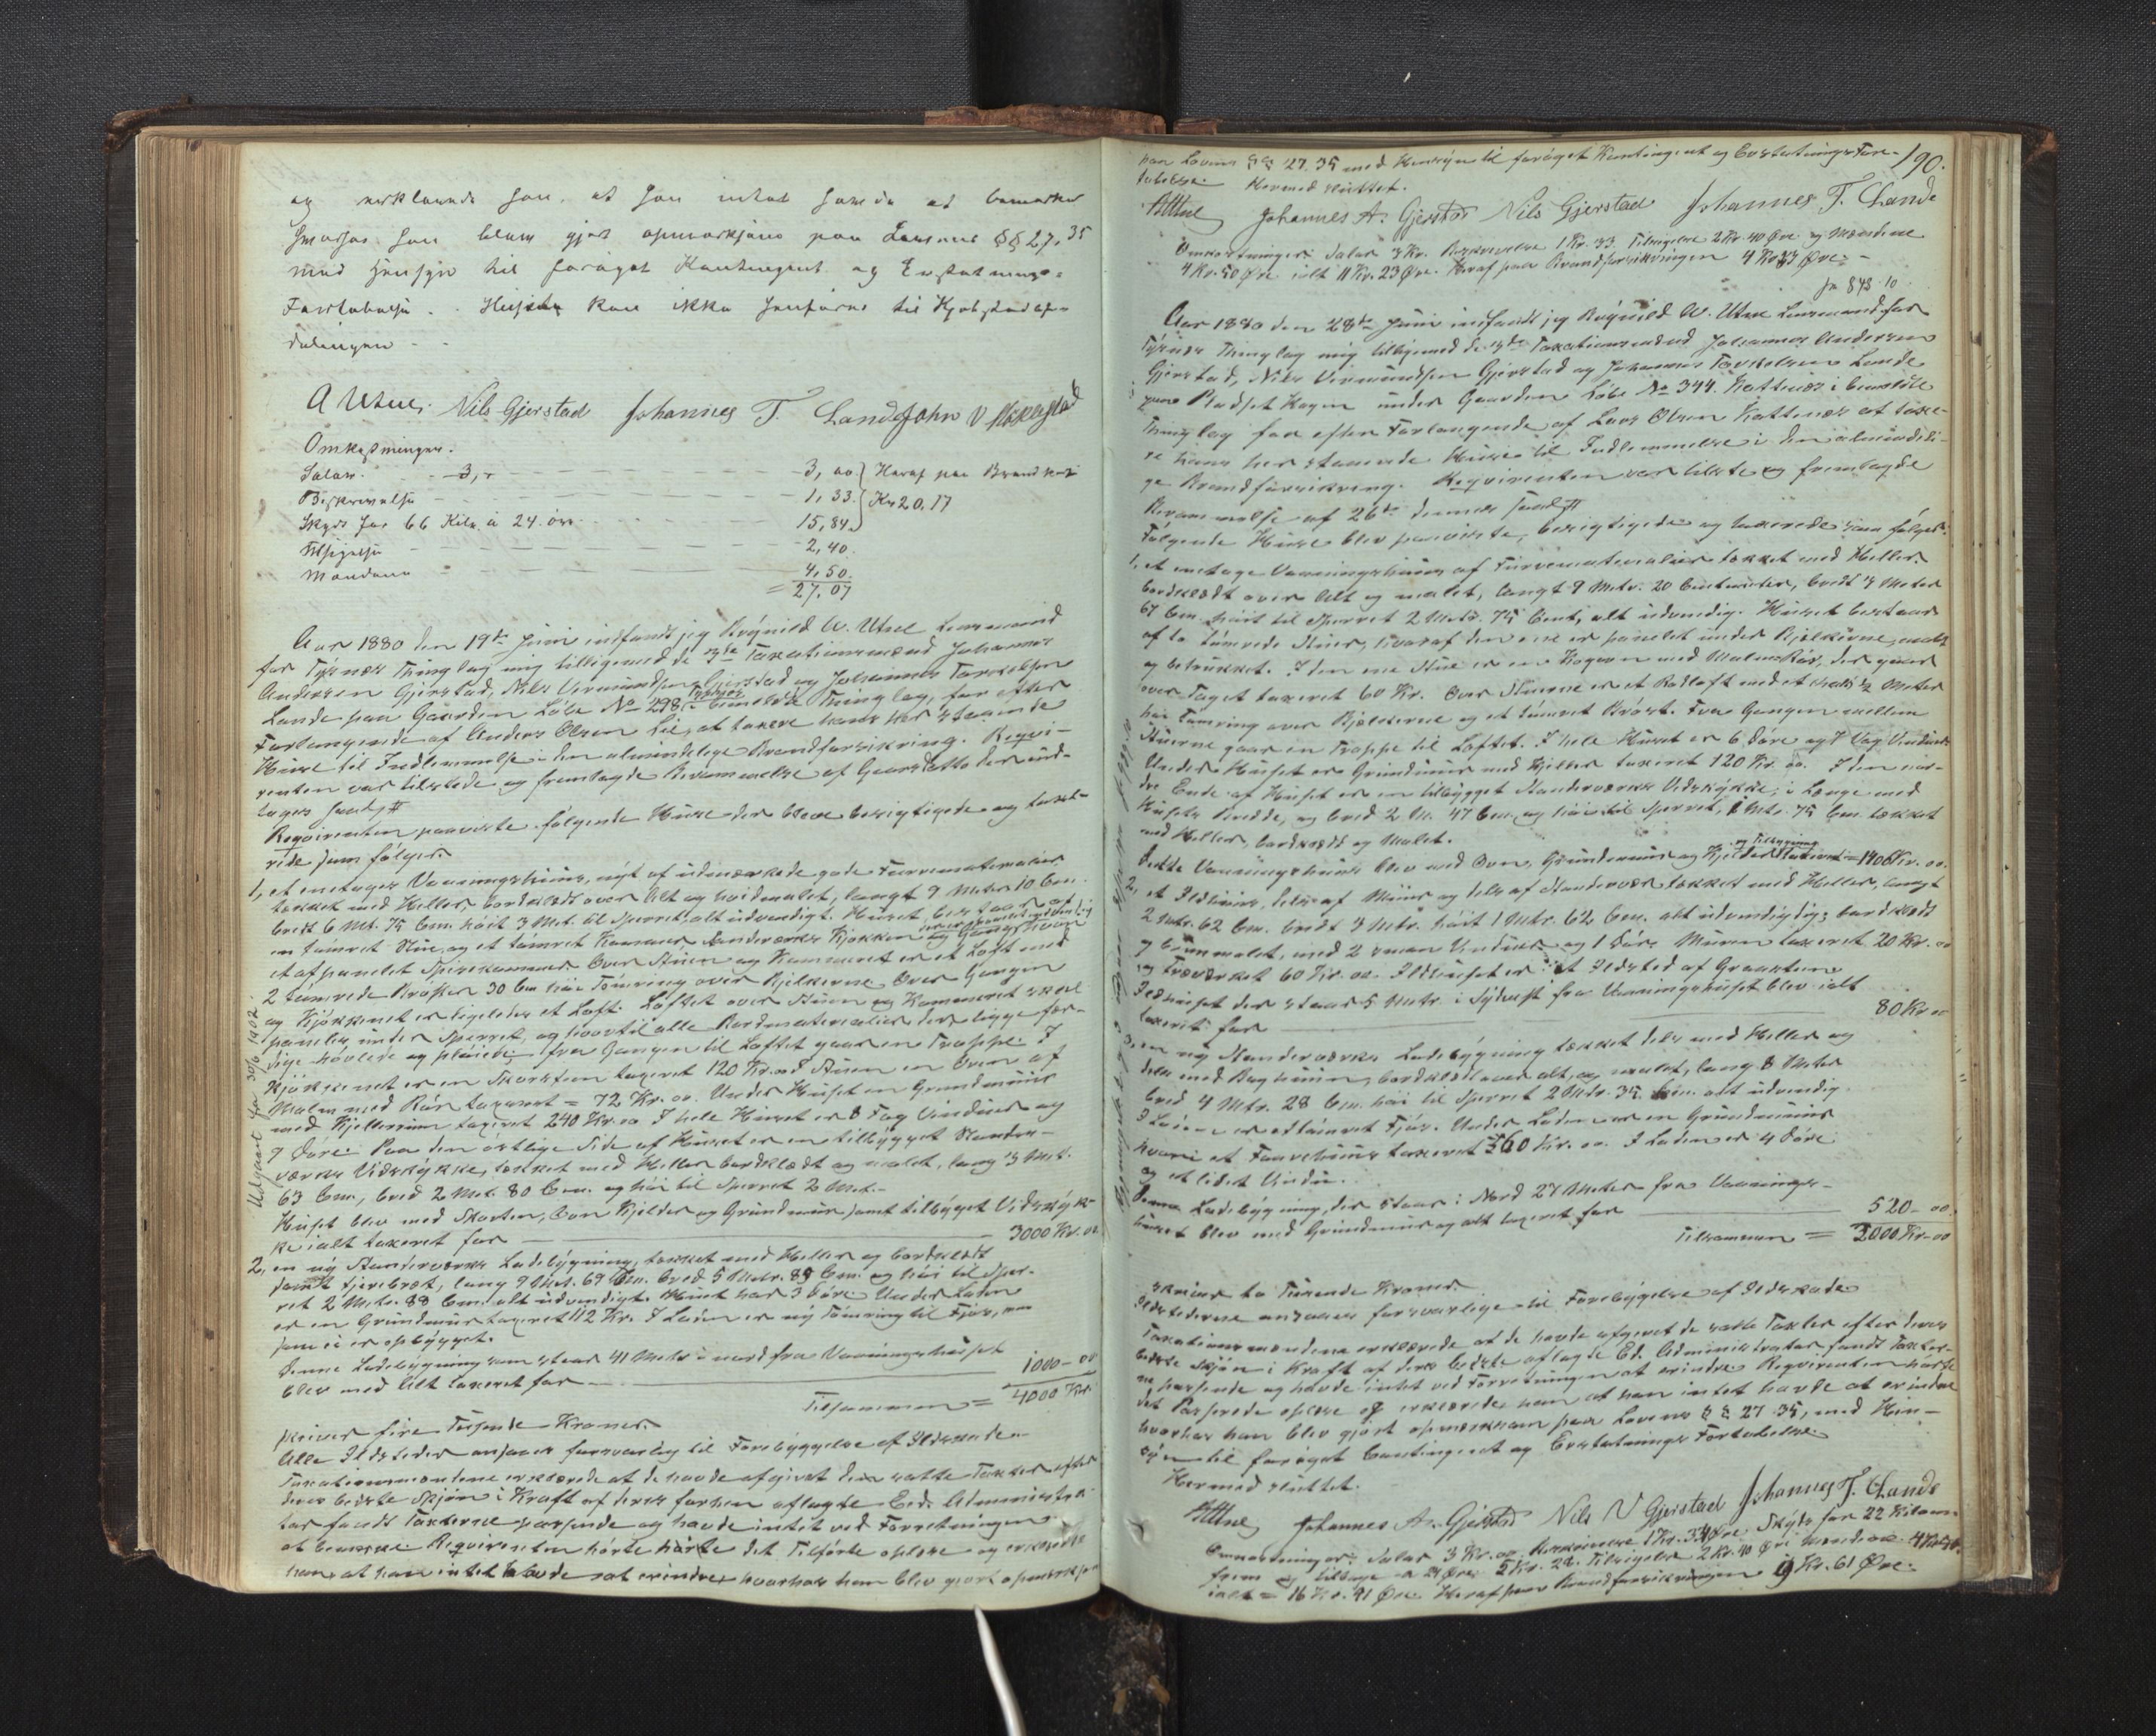 og erklærede han at han intet havde at bemærke
hvorhos han blev gjort opmærksom paa Lovens §§ 27, 35
med Hensyn til forøget Kontingent og Erstatnings-
Fortabelse. Husene kan ikke henføres til Kjøbstadafde-
delingen
A Utne. Nils Gjerstad Johannes T. Lande John
Omkostninger.
Salær 3,00 Heraf paa Brandkas
Beskrivelse 1,33 Kr 20,17
Skyds for 66 Kilm. à 24 øre 15,84
Tilsigelse 2,40.
Mændene 4,50.
= 27,07
Aar 1880 den 19de Juni indfandt jeg Brynild A. Utne Lensmand
for Tysnes Thinglag mig tilligemed de 3de Taxationsmænd Johannes
Andersen Gjerstad, Nils Vermundsen Gjerstad og Johannes Torkelsen
Lande paa Gaarden Løbe No 298 i bemeldte Thinglag, for efter
Forlangende af Anders Olsen Lie, at taxere hans her staaende
Huse til Indlemmelse i den almindelige Brandforsikring. Reqvi-
renten var tilstede og fremlagde Berammelse af Gaarsdatto der ind-
tages saal. #
Reqvirenten paaviste følgende Huse der bleve besigtigede og taxe-
rede som følger.
1, et enetages Vaaningshuus, nyt af udmærkede gode Furrematerialier
tækket med Heller, bordklædt over Alt og hvidmalet, langt 9 Meter 10 Cm.
bredt 6 Mt. 75 Cm. høit 3 Met. til Sperret, alt udvendigt. Huset bestaar af
en tømret Stue, og et tømret Kammer Standværks Kjøkken og Gang hvoraf
et afpanelet Spisekammer. Over Stuen og Kammeret er et Loft med
2 tømrede Brøster 30 Cm høi Tømring over Bjelkerne. Over Gangen
og Kjøkkenet er ligeledes et Loft. Loftet over Stuen og Kammeret skal
paneles under Sperret, og hvortil alle Bordmaterialier der ligge fær-
dige høvlede og pløiede; fra Gangen til Loftet gaar en Trappe. I
Kjøkkenet er en Skorsten taxeret 120 Kr. I Stuen en Oven af
Malm med Rør taxeret = 72 Kr. oo. Under Huset en Grundmuur
med Kjellerrum taxeret 240 Kr. oo I hele Huset er 8 Fag Vinduer og
9 Døre. Paa den østlige Side af Huset er en tilbygget Stander-
værks Vedskykke, tækket med Heller bordklædt og malet, lang 3 Met.
63 Cm, bred 2 Met. 80 Cm. og høi til Sperret 2 Met.
Huset blev med Skorsten, Oven Kjelder og Grundmur samt tilbygget Vedskyk-
ke ialt taxeret for 3000 Kr. oo
2, en ny Standværks Ladebygning, tækket med Heller og bordklædt
samt tjærebræt, lang 9 Met. 69 Cm. bred 5 Metr. 89 Cm. og høi til Sper-
ret 2 Metr. 88 Cm. alt udvendigt. Huset har 3 Døre. Under Laden
er en Grundmur taxeret 112 Kr. I Laden er ny Tømring til Fjøs, som
som ei er opbygget.
Denne Ladebygning som staar 41 Metr i nord fra Vaaningshuset
blev med Alt taxeret for 1000 - oo
Tilsammen = 4000 Kr.
skriver fire Tusende Kroner.
Alle Ildsteder ansaaes forsvarlig til Forebyggelse af Ildskade.
Taxationsmændene erklærede at de havde afgivet den satte Taxter efter
deres bedste Skjøn i Kraft af deres forhen aflagte Eed. Administra-
tor fandt Taxterne passende og havde intet ved Forretningen
at bemærke Reqvirenten hørte hørte det Tilførte oplæse og erklærede
han, at han intet havde at erindre, hvorhos han blev gjort opmærksom
Udgaaet 30/6 1902.
190.
paa Lovens §§ 27. 35 med Hensyn til forøget Kontingent og Erstatnings For-
tabelse. Hermed sluttet.
AUtne Johannes A. Gjerstad Nils Gjerstad Johannes T. Lande
Omkostninger: Salær 3 Kr. Beskrivelse 1 Kr. 33. Tilsigelse 2 Kr. 40 Øre og Mændene
4 Kr. 50 Øre ialt 11 Kr. 23 Øre. Heraf paa Brandforsikringen 4 Kr 33 Øre.
Aar 1880 den 28de Juni indfandt jeg Brynild A. Utne Lensmand for
Tysnes Thinglag mig tilligemed de 3de Taxationsmænd Johannes Andersen
Gjerstad, Nils Vermundsen Gjerstad og Johannes Torkelsen Lande
paa Pladset Hagen under Gaarden Løbe No 344. Hattnes i bemeldte
Thinglag for efter Forlangende af Lars Olsen Hattenes at taxe-
re hans her staaende Huse til Indlemmelse i den almindeli-
ge Brandforsikring. Reqvirenten var tilstede og fremlagde
Berammelse af 26de dennes saal. #
Følgende Huse blev paaviste, besigtigede og taxerede som følger.
1, et enetages Vaaningshuus af Furrematerialier tækket med Heller,
bordklædt over Alt og malet, langt 9 Metr. 20 Centimeter, bredt 4 Meter
67 Cm. høit til Sperret 2 Metr. 75 Cent, alt udvendig. Huset bestaar
af to tømrede Stuer, hvoraf den ene er panelet under Bjelkerne, malt
og betrukket. I den ene Stue er en Kogeovn med Malm Rør, der gaaer
over Taget taxeret 60 Kr. Over Stuerne er et Bordloft med et 1/2 Meter
høi Tømring over Bjelkerne og et tømret Brøst. Fra Gangen mellem
Stuerne gaar en Trappe til Loftet. I hele Huset er 6 Døre og 7 Fag Vinduer.
Under Huset er Grundmuur med Kjelder taxeret 120 Kr. oo. I den nor-
dre Ende af Huset er en tilbygget Standerværks Vedskykke, i Længe med
Husets Bredde, og bred 2 M. 47 Cm. og høi til Sperret, 1 Metr. 75 Cm. tækket
med Heller, bordklædt og Malet.
og Tilbygning
Dette Vaaningshuus blev med Oven, Grundmuur og Kjelder taxeret = 1400 Kr. oo.
2, et Ildhuus, dels af Muur og dels af Standerværk tækket med Heller, langt
2 Metr. 62 Cm. bredt 3 Metr. høit 1 Metr. 62 Cm. alt udvendig; bordklædt
og brunmalet, med 2 smaa Vinduer og 1 Dør. Muren taxeret 20 Kr. oo
og Træværket 60 Kr. oo. Ildhuset er et Ildsted af Graasteen.
Ildhuset der staar 5 Metr. i Sydvest fra Vaaningshuset blev ialt
taxeret for 80 Kr oo
3, en ny Standerværks Ladebygning tækket dels med Heller og
dels med Baghuun, bordklædt over alt, og malet, lang 8 Meter
bred 4 Metr. 28 Cm. høi til Sperret 2 Metr. 35 Cm. alt udvendig.
I Laden er et tømret Fjøs. Under Laden er en Grundmuur
hvori et Faarehuus taxeret 360 Kr. oo. I Laden er 4 Døre
og et lidet Vindu.
Denne Ladebygning, der staar i Nord 27 Meter fra Vaanings-
huset blev med Grundmuur og alt taxeret for 520 - oo.
Tilsammen = 2000 Kr - oo
skriver to Tusende Kroner.
Ildstederne ansaaes forsvarlige til Forebygelse af Ildskade
Taxationsmændene erklærede at de havde afgivet de satte Taxter efter deres
bedste Skjøn i Kraft af dens bedste aflagte Ed. Administrator fandt Taxter-
ne passende og havde intet ved Forretningen at erindre Reqvirenten hørte
det Passerede oplæse og erklærede han at han intet havde at erindre
hvorhos han blev gjort opmærksom paa Lovens §§ 27. 35, med Hen-
syn til forøget Contingent og Erstatnings Fortabelse.
Hermed sluttet.
AUtne Johannes A. Gjerstad Nils V Gjerstad Johannes T. Lande
Omkostninger: Salær 3 Kr. oo. Beskrivelse 1 Kr. 33 Øre Skyds for 22 Kilom.
frem og tilbage a 24 Øre 5 Kr. 28. Tilsigelse 2 Kr. 40 Øre Mændene 4 Kr 50.
ialt = 16 Kr. 41 Øre. Heraf paa Brandforsikringen 9 Kr. 61 Øre.